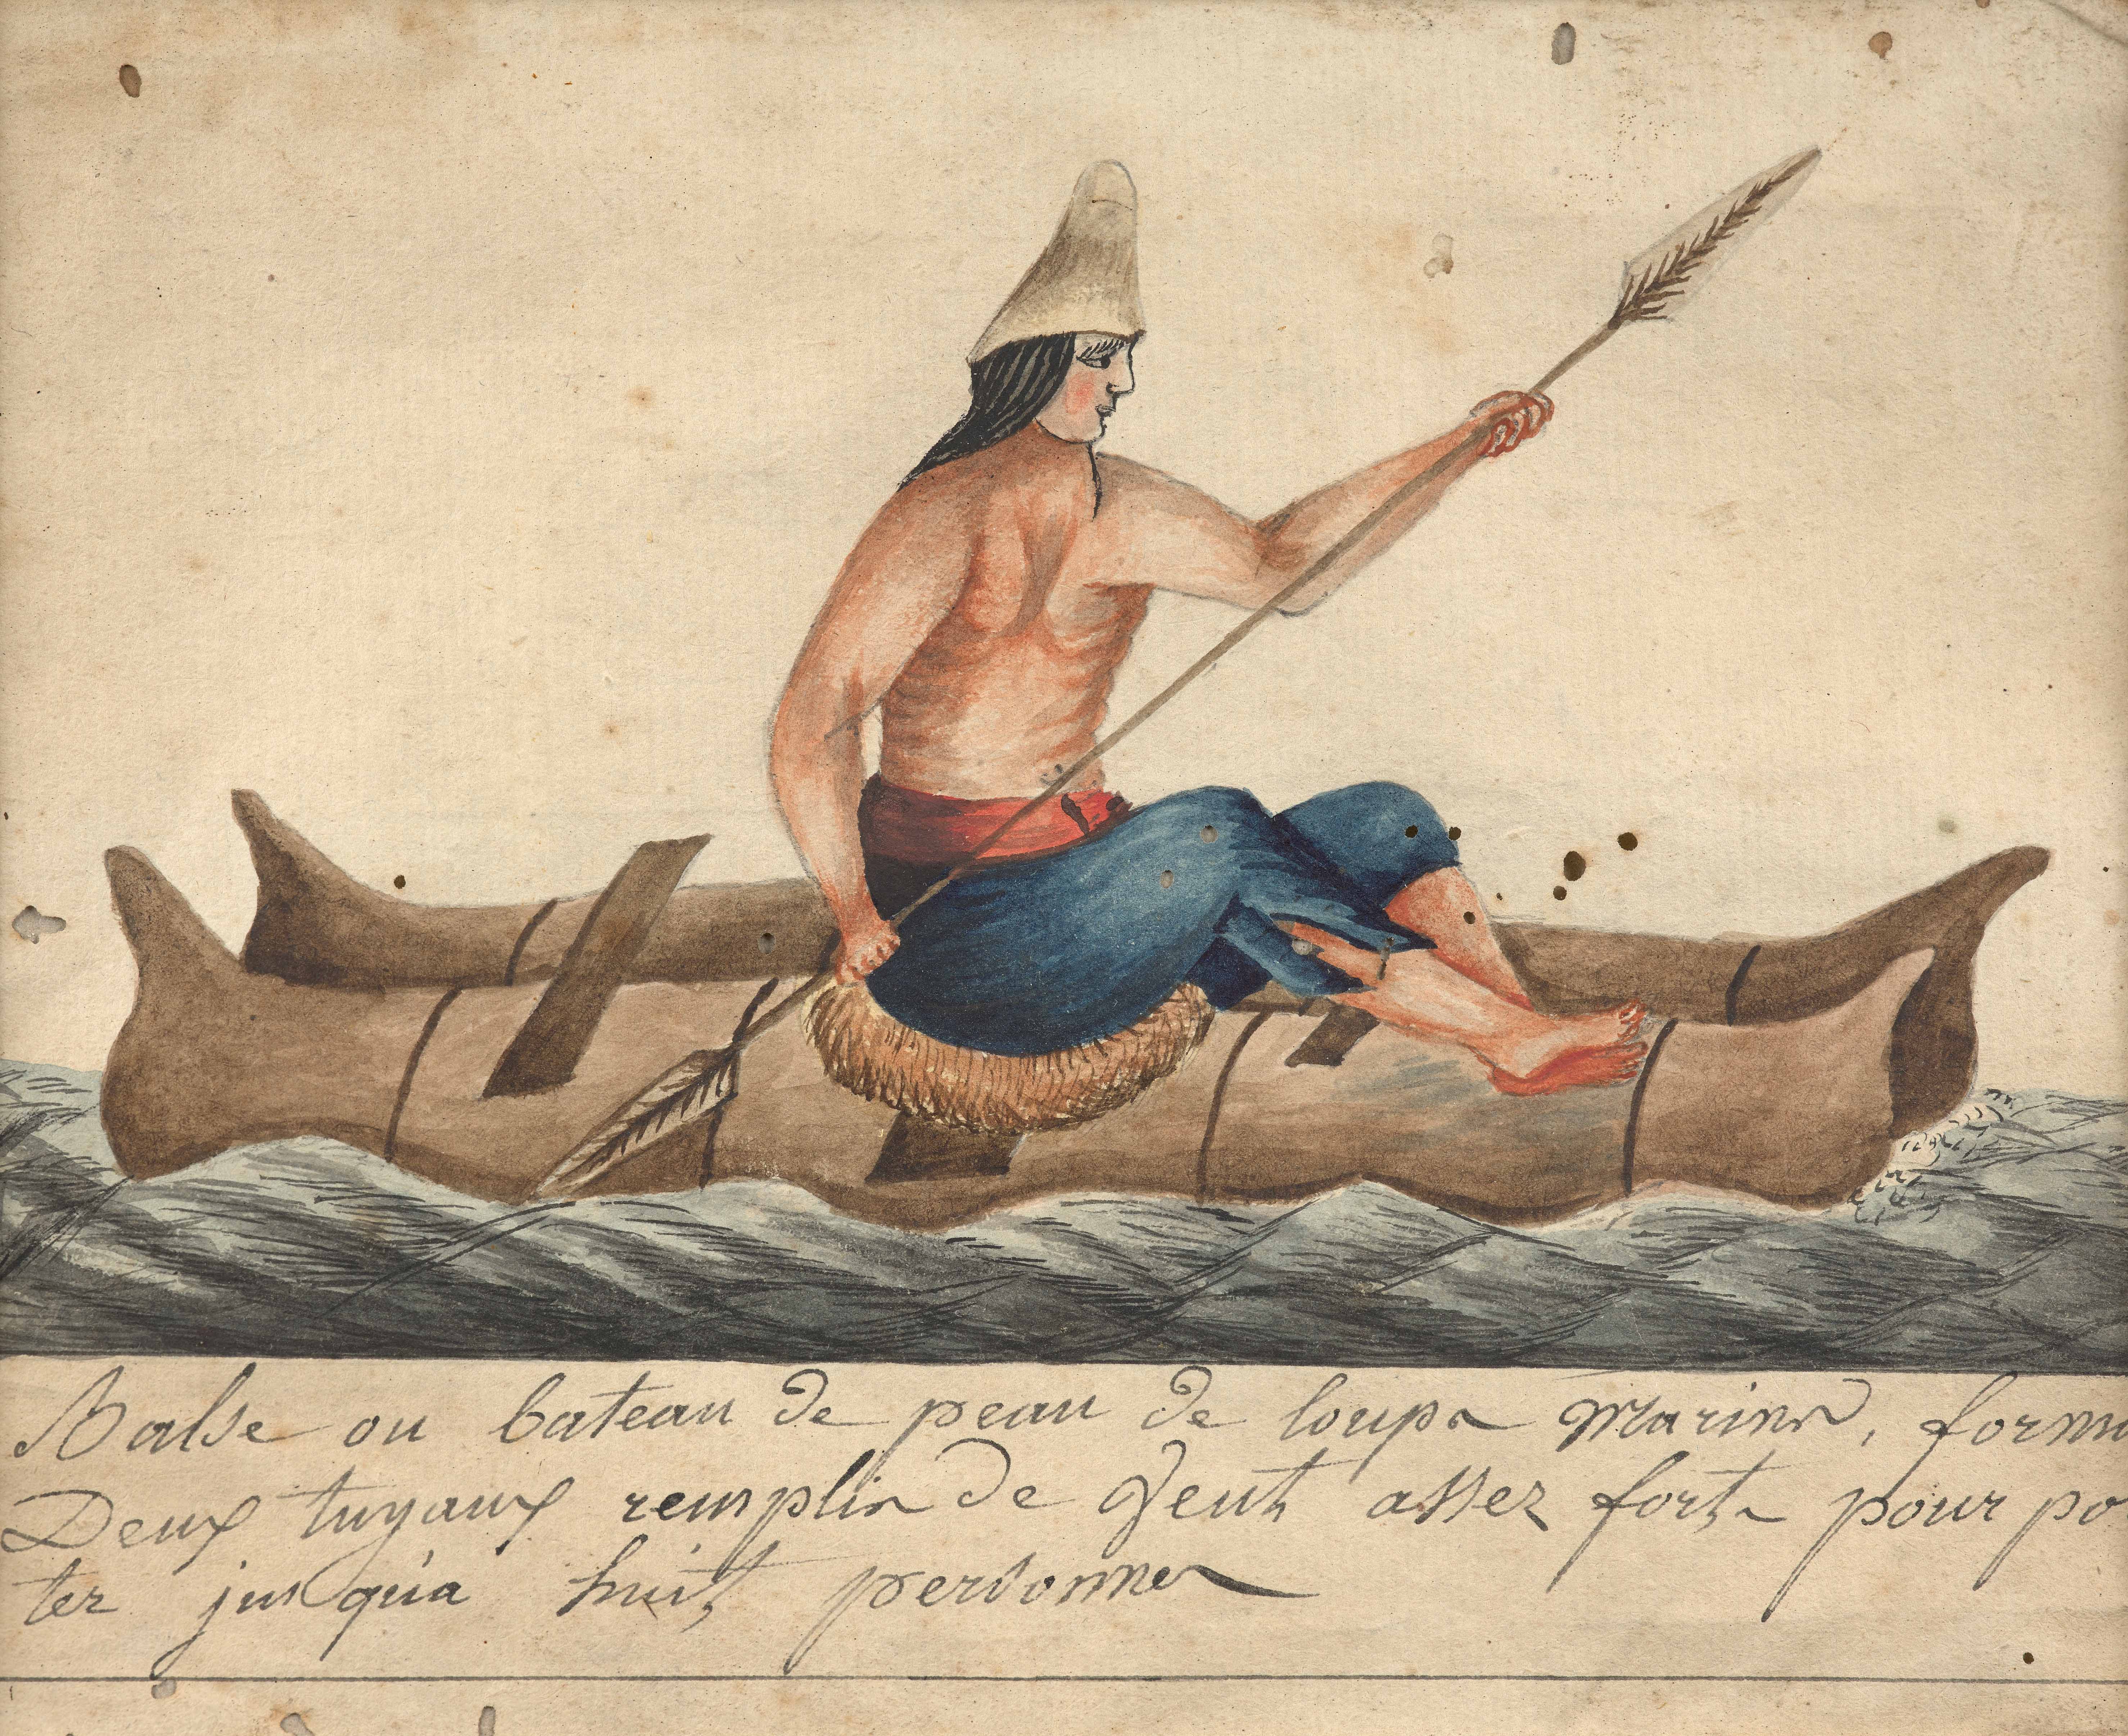 Balse ou bateau de peau de loups marins, form
Deux tuyaux remplis de Vent assez forts pour po
ter jusqu'a huit personnes